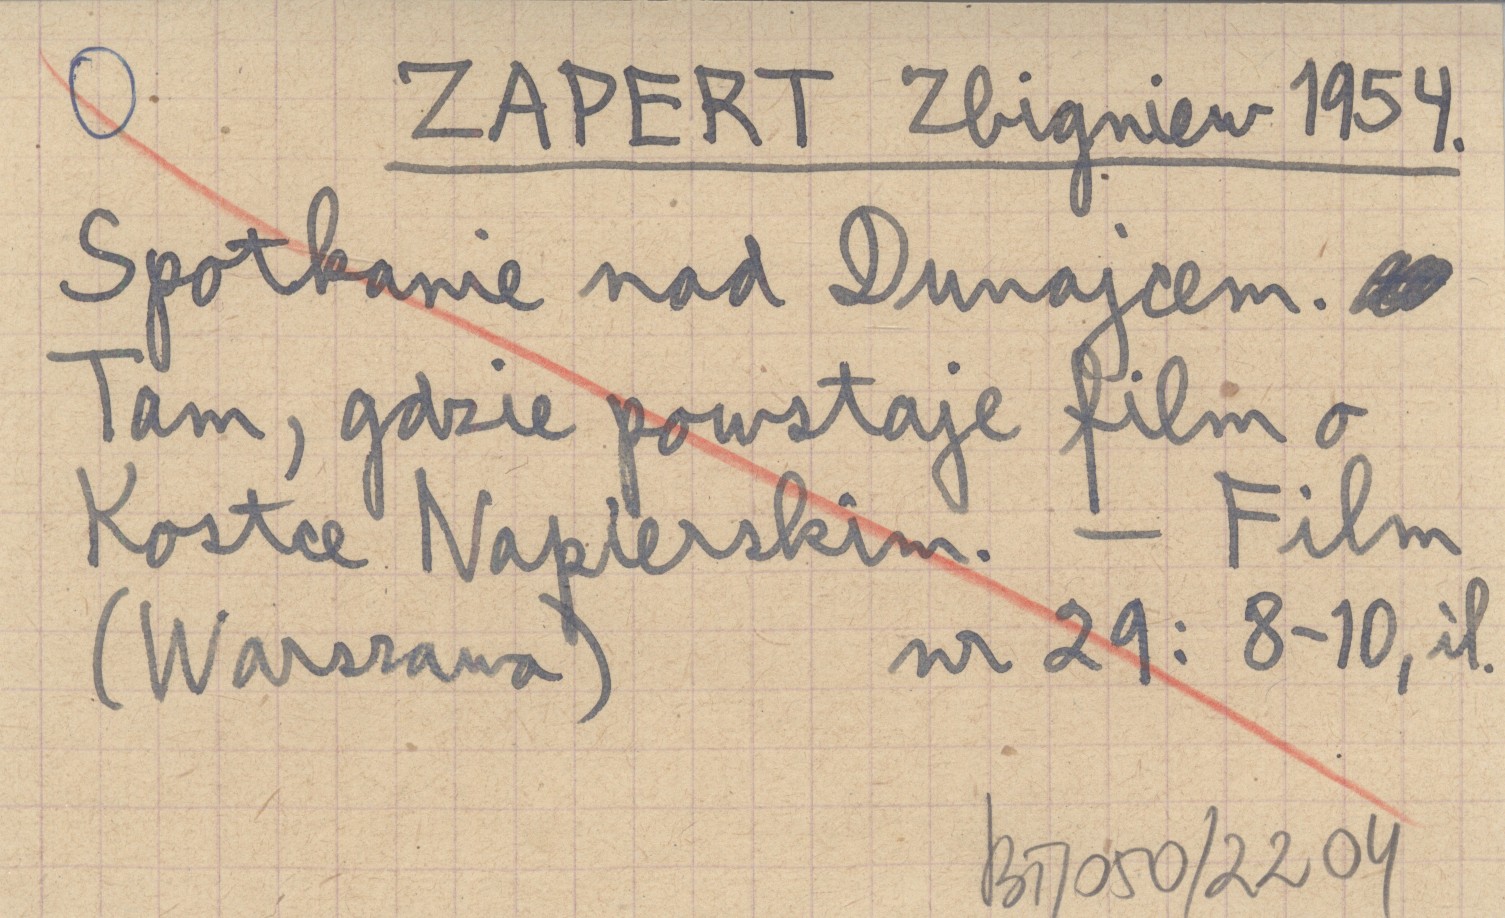 ZAPERT Zbigniew 1954.
Spotkanie nad Dunajcem.
Tam, gdzie powstaje film o
Kostce Napierskim. — Film
(Warszawa) nr 29: 8-10, il.
BT/050/2204